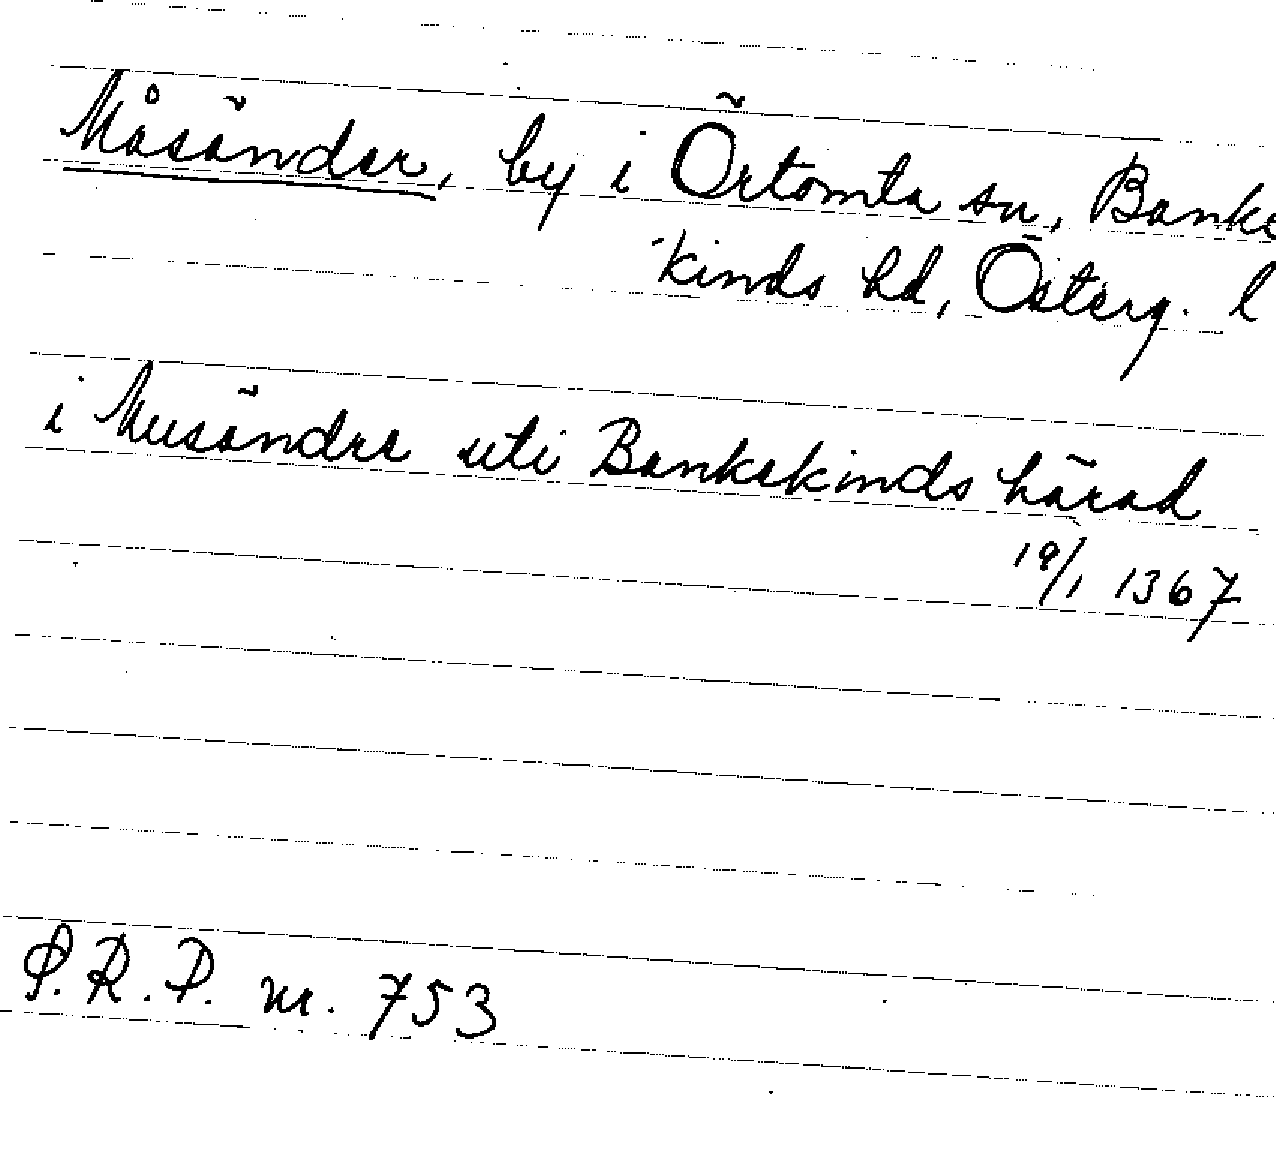 Måsänder, by i Örtomta sn, Banke
kinds hd, Österg. l
i Musändra uti Bankakinds härad
19/1 1367
P.R.P. nr. 753